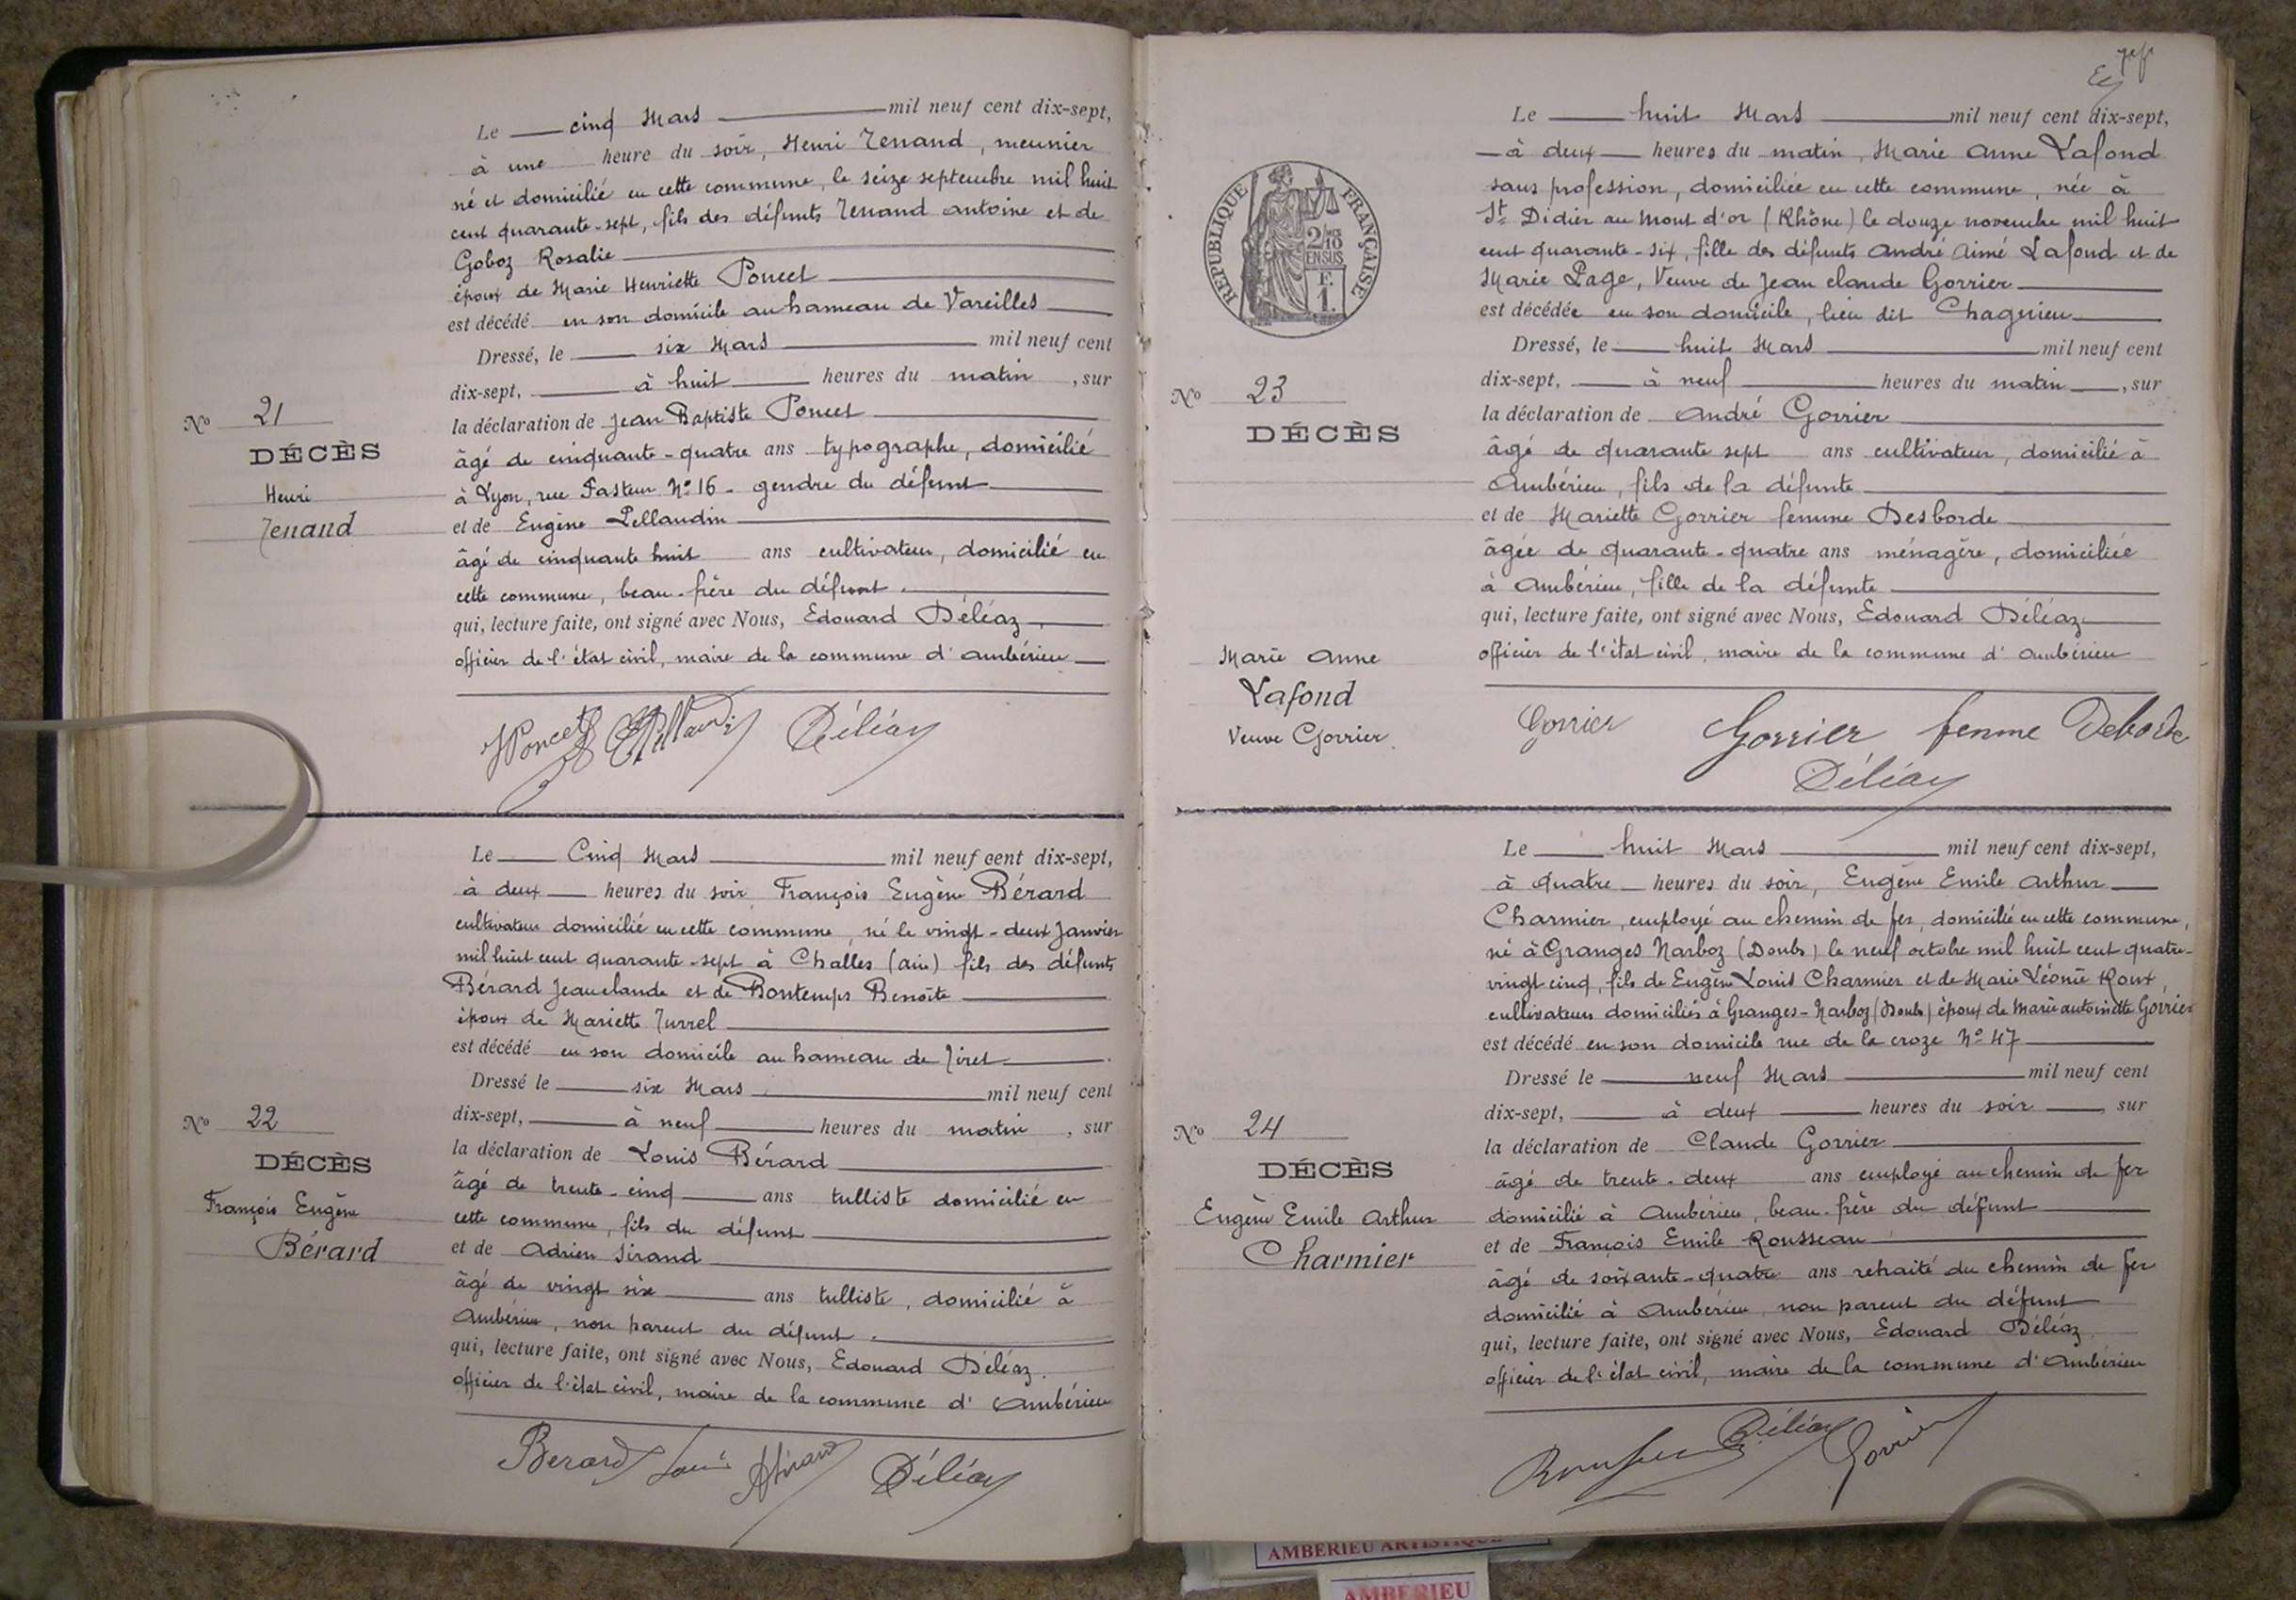 Le cinq Mars mil neuf cent dix-sept,
à une heure du soir, Henri Tenand, meunier
né et domicilié en cette commune, le seize septembre mil huit
cent quarante-sept, fils des défunts Tenand antoine et de
Goboz Rosalie
époux de Marie Henriette Poncet
est décédé en son domicile au hameau de Vareilles
Dressé, le six Mars mil neuf cent
dix-sept, à huit heures du matin, sur
la déclaration de Jean Baptiste Poncet
âgé de cinquante-quatre ans typographe, domicilié
à Lyon, rue Pasteur No 16 - gendre du défunt
et de Eugène Pellaudin
âgé de cinquante huit ans cultivateur, domicilié en
cette commune, beau-frère du défunt.
qui, lecture faite, ont signé avec Nous, Edouard Déléaz,
officier de l'état civil, maire de la commune d'ambérieu
No 21
DÉCÈS
Henri
Tenand
Poncet Déléaz
Le Cinq Mars mil neuf cent dix-sept,
à deux heures du soir François Eugène Bérard
cultivateur domicilié en cette commune, né le vingt-deux Janvier
mil huit cent quarante-sept à Challes (ain) fils des défunts
Bérard Jean claude et de Bontemps Benoîte
époux de Mariette Turrel
est décédé en son domicile au hameau de Tiret
Dressé le six Mars mil neuf cent
dix-sept, à neuf heures du matin, sur
la déclaration de Louis Bérard
âgé de trente-cinq ans tulliste domicilié en
cette commune, fils du défunt
et de Adrien Sirand
âgé de vingt six ans tulliste, domicilié à
Ambérieu, non parent du défunt.
qui, lecture faite, ont signé avec Nous, Edouard Déléaz.
officier de l'état civil, maire de la commune d'Ambérieu
No 22
DÉCÈS
François Eugène
Bérard
Berard Louis ASirand Déléaz
Le huit Mars mil neuf cent dix-sept,
à deux heures du matin, Marie Anne Lafond
sans profession, domiciliée en cette commune, née à
St Didier au Mont d'or (Rhône) le douze novembre mil huit
cent quarante-six, fille des défunts André Aimé Lafond et de
Marie Page, Veuve de Jean claude Gorrier
est décédée en son domicile, lieu dit Chagnieu
Dressé, le huit Mars mil neuf cent
dix-sept, à neuf heures du matin, sur
la déclaration de André Gorrier
âgé de quarante sept ans cultivateur, domicilié à
Ambérieu, fils de la défunte
et de Mariette Gorrier femme Desborde
âgée de quarante-quatre ans ménagère, domiciliée
à Ambérieu, fille de la défunte
qui, lecture faite, ont signé avec Nous, Edouard Déléaz
officier de l'état civil, maire de la commune d'Ambérieu
RÉPUBLIQUE FRANÇAISE
2/10
EN SUS
F.
1.
No 23
DÉCÈS
Marie Anne
Lafond
Veuve Gorrier.
Gorrier Gorrier femme Deborde
Déléaz
Le huit Mars mil neuf cent dix-sept,
à quatre heures du soir, Eugène Emile Arthur
Charmier, employé au chemin de fer, domicilié en cette commune,
né à Granges Narboz (Doubs) le neuf octobre mil huit cent quatre-
vingt cinq, fils de Eugène Louis Charmier et de Marie Léonie Roux
cultivateurs domiciliés à Granges-Narboz (Doubs) époux de Marie antoinette Gorrier
est décédé en son domicile rue de la croze No 47
Dressé le neuf Mars mil neuf cent
dix-sept, à deux heures du soir, sur
la déclaration de Claude Gorrier
âgé de trente-deux ans employé au chemin de fer
domicilié à Ambérieu, beau-frère du défunt
et de François Emile Rousseau
âgé de soixante-quatre ans retraité du chemin de fer
domicilié à Ambérieu, non parent du défunt
qui, lecture faite, ont signé avec Nous, Edouard Déléaz
officier de l'état civil, maire de la commune d'Ambérieu
No 24
DÉCÈS
Eugène Emile Arthur
Charmier
Rousseau Déléaz Gorrier
AMBERIEU ARTISTIQUE
AMBERIEU